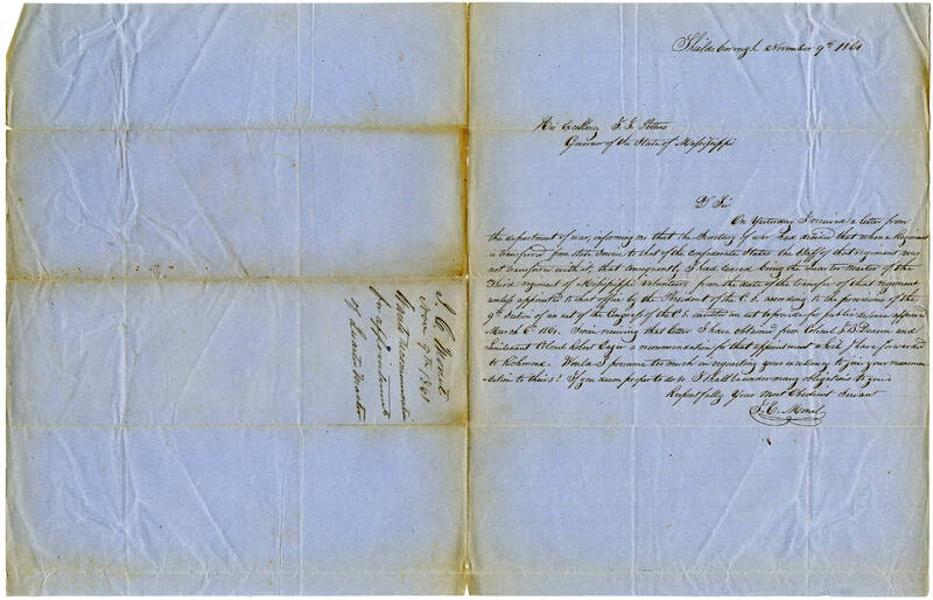 Shieldsborough November 9th 1861
His Excellency J. J. Pettus
Governor of the State of Mississippi
Dr Sir
On Yesterday I received a letter from
the department of war, informing me that the Secretary of war had decided that when a Regiment
is transferred from state Service to that of the confederate States the Staff of that regiment was
not transferred with it, that consequently I had ceased being the Quarter Master of the
Third regiment of Mississippi Volunteers from the date of the transfer of that regiment
unless appointed to that office by the President of the C. S. according to the provisions of the
9th Section of an act of the Congress of the C. S. entitled an act to provide for public defense approved
March 6th 1861. Since receiving that letter I have obtained from Colonel J. B. Deason and
Lieutenant Colonel Robert Eager a recommendation for that appointment which I have forwarded
to Richmond. Would I presume too much in requesting your excellency to join your recommen
-dation to theirs? If you deem proper to do so I shall be under many obligations to you.
Respectfully Your Most Obedient Servant
J. C. Monet
J. C. Monet
Nov 9th 1861
Wants recommendation
for appointment
of Quarter Master